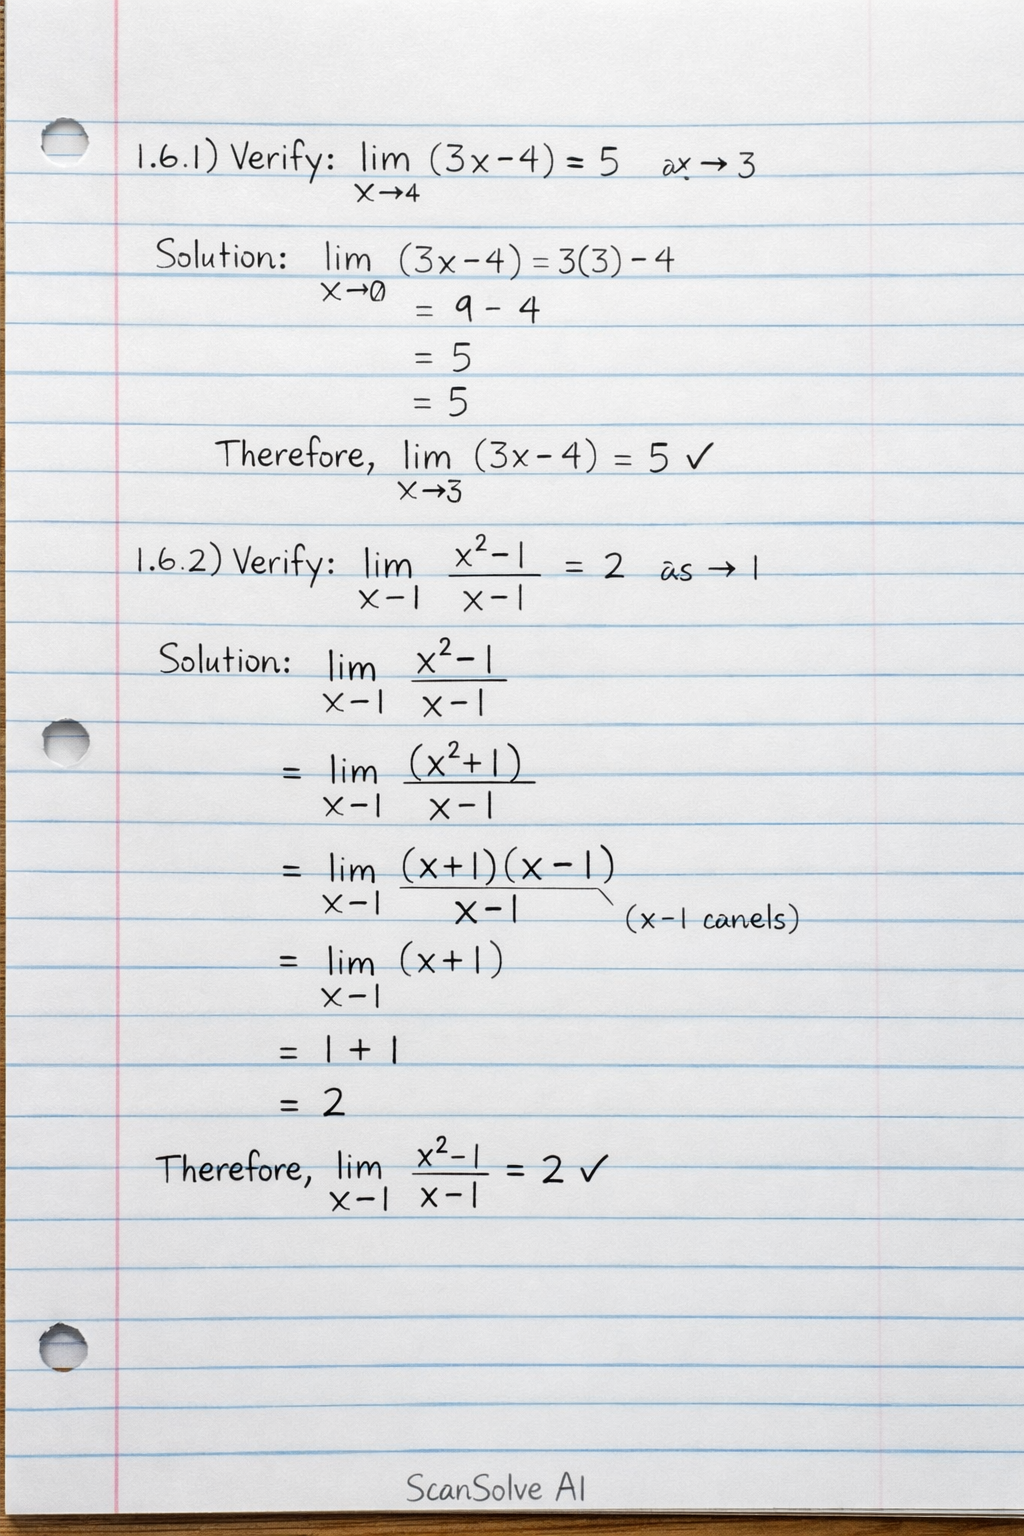 1.6.1) Verify: lim (3x-4) = 5 ax → 3
x→4
Solution: lim (3x-4) = 3(3) - 4
x→0
= 9 - 4
= 5
= 5
Therefore, lim (3x-4) = 5 ✓
x→3
1.6.2) Verify: lim x²-1 = 2 as → 1
x-1 x-1
Solution: lim x²-1
x-1 x-1
= lim (x²+1)
x-1 x-1
= lim (x+1)(x-1)
x-1 x-1 (x-1 canels)
= lim (x+1)
x-1
= 1 + 1
= 2
Therefore, lim x²-1 = 2 ✓
x-1 x-1
ScanSolve AI